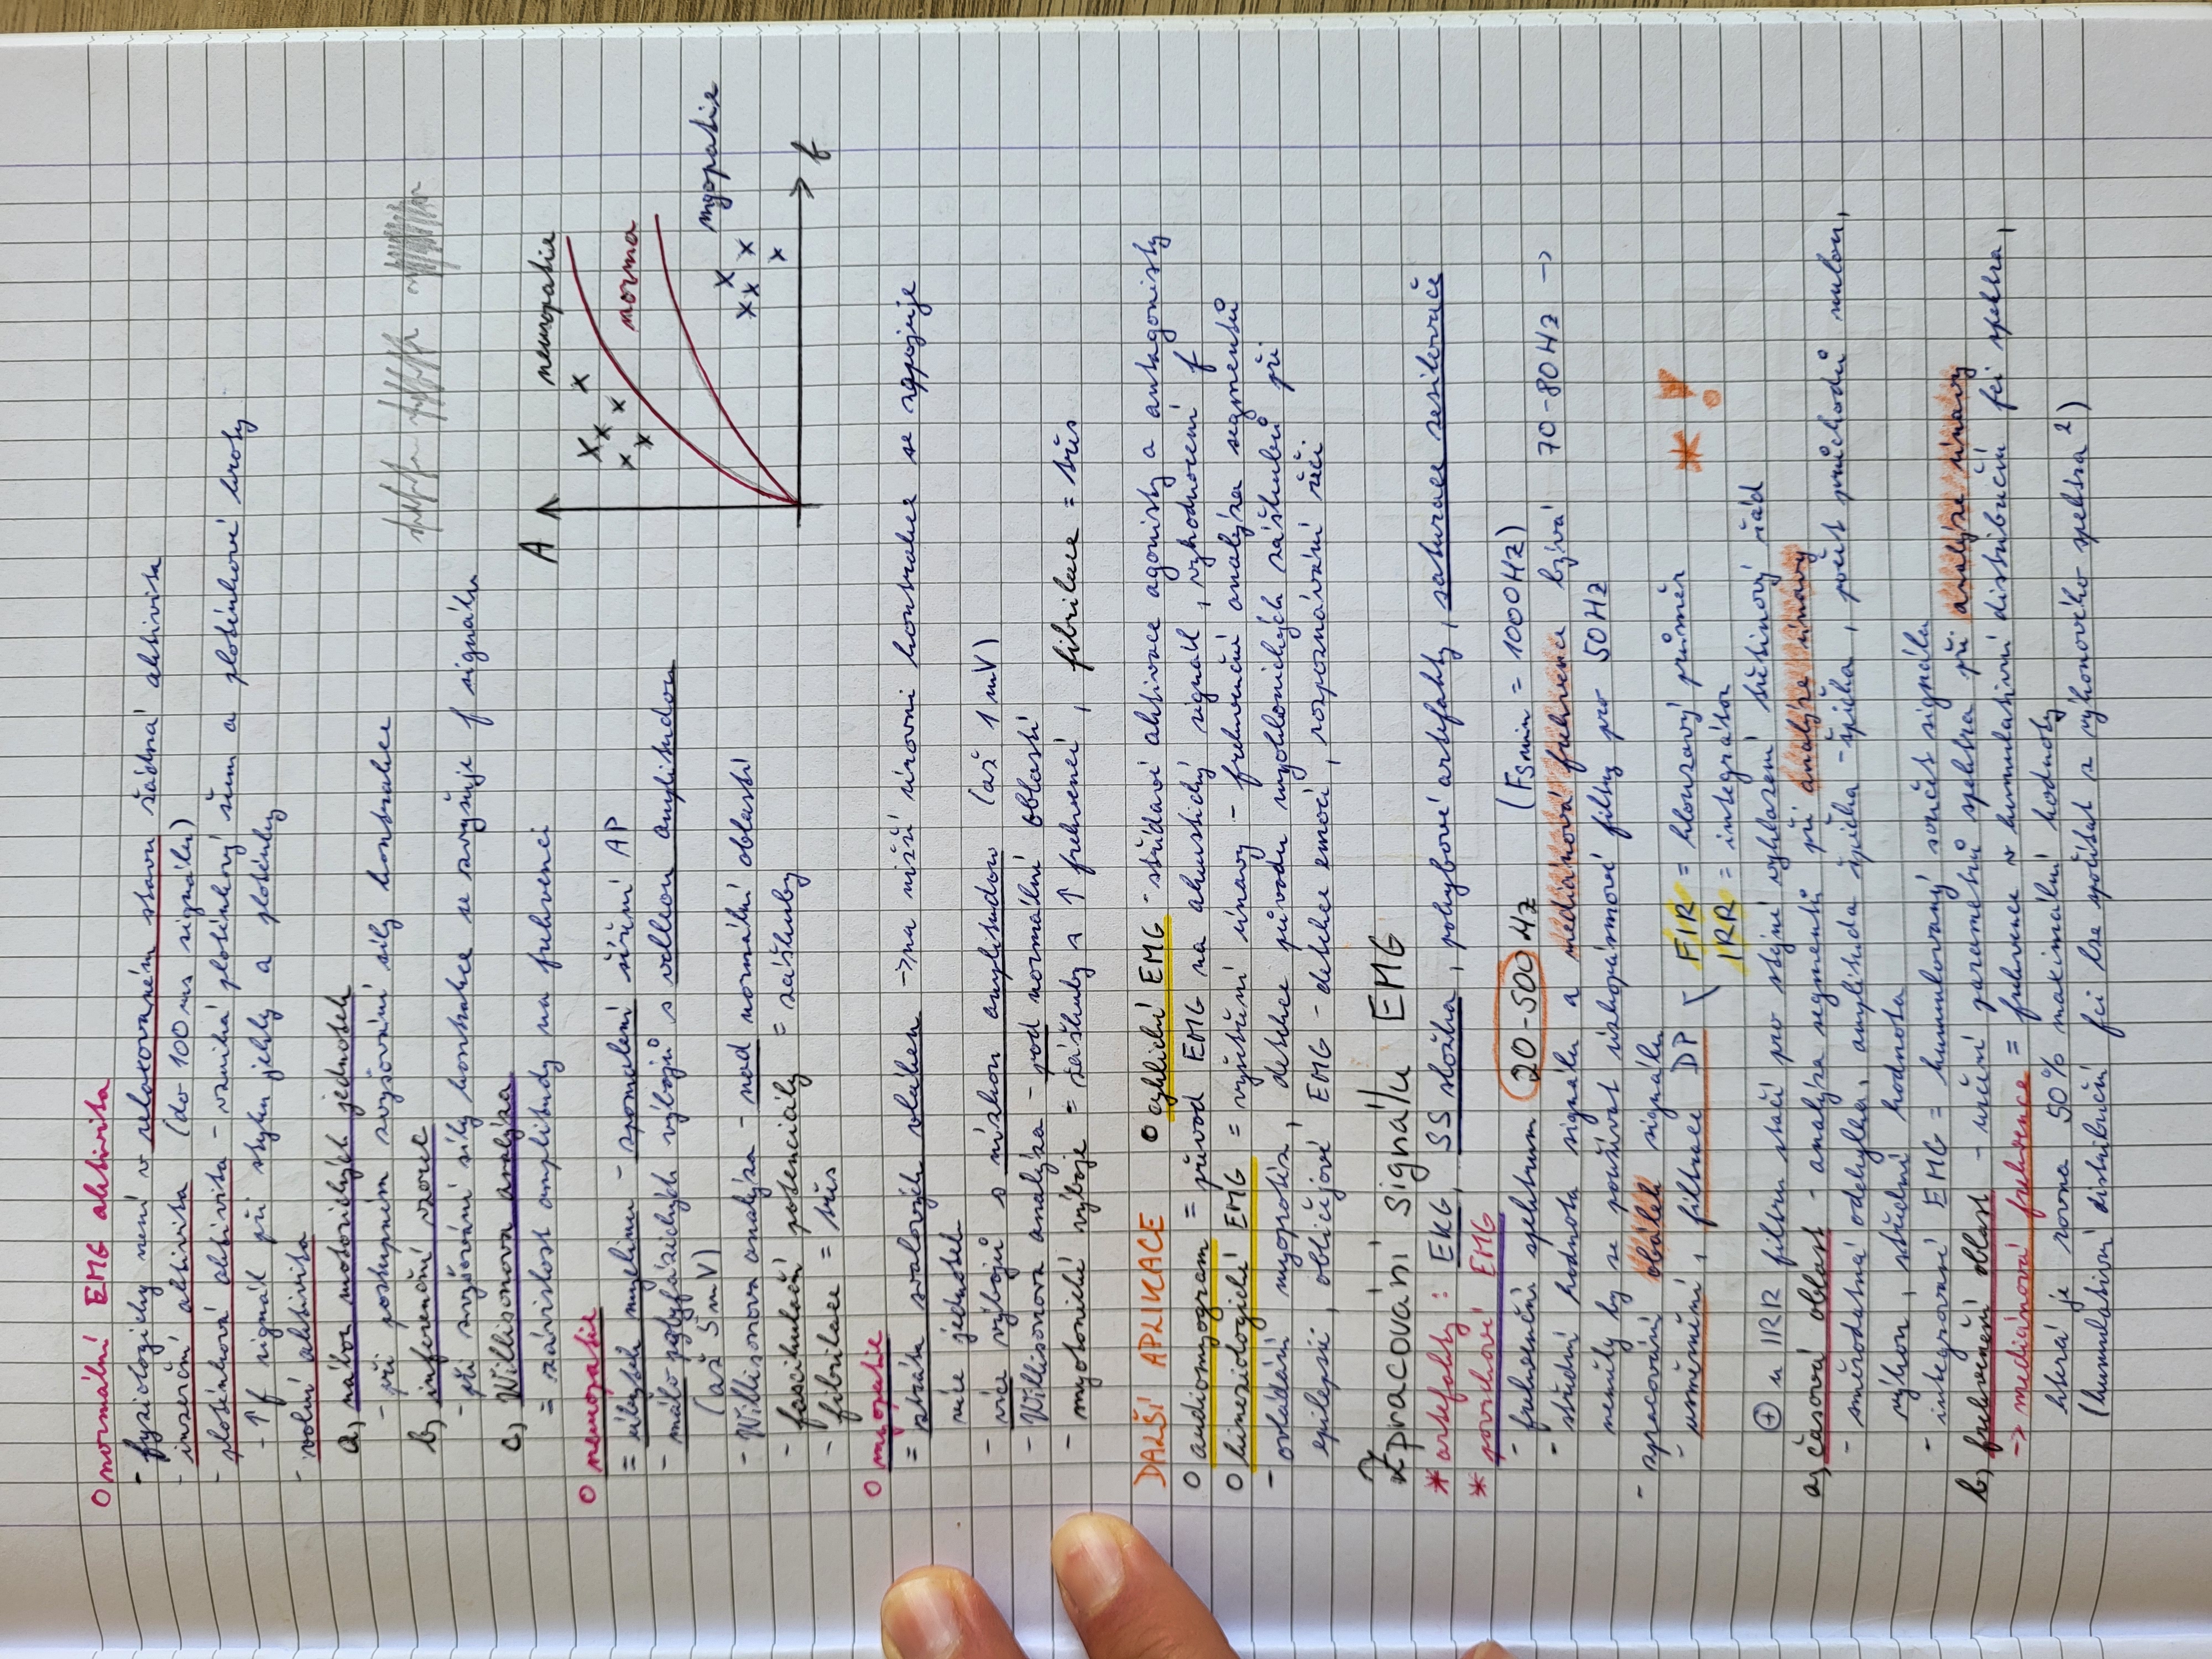 o normální EMG aktivita
- fyziologicky není v relaxovaném stavu žádná aktivita
- inzerční aktivita (do 100 ms signálu)
- ploténková aktivita - vzniká ploténkový šum a ploténkové hroty
- ↑f signál při styku jehly a ploténky
- volní aktivita
a) nábor motorických jednotek
- při postupném zvyšování síly kontrakce
b) inferenční vzorec
- při zvyšování síly kontrakce se zvyšuje f signálu
c) Willisonova analýza
= závislost amplitudy na frekvenci
A
neuropatie
norma
myopatie
f
o neuropatie
= úbytek myelinu - zpomalení šíření AP
- málo polyfázických výbojů s velkou amplitudou
(až 5 mV)
- Willisonova analýza - nad normální oblastí
- fascikulační potenciály = záškuby
- fibrilace = třes
o myopatie
= ztráta svalových vláken -> na nižší úrovni kontrakce se zapojuje
více jednotek
- více výbojů s nízkou amplitudou (až 1 mV)
- Willisonova analýza - pod normální oblastí
- myotonické výboje = záškuby s ↑ frekvencí, fibrilace = třes
DALŠÍ APLIKACE o cyklické EMG - střídavé aktivace agonisty a antagonisty
o audiomyogram = převod EMG na akustický signál, vyhodnocení f
o kineziologické EMG = vyšetření únavy - frekvenční analýza segmentů
- ovládání myoprotéz, detekce původu myoklonických záškubů při
epilepsii, obličejové EMG - detekce emocí, rozpoznávání řeči
Zpracování signálu EMG
* artefakty: EKG, SS složka, pohybové artefakty, saturace zesilovače
* povrchové EMG
- frekvenční spektrum 20-500 Hz (Fsmin = 1000 Hz)
- střední hodnota signálu a mediánová frekvence bývá 70-80 Hz ->
neměly by se používat úzkopásmové filtry pro 50 Hz
- zpracování obálek signálu
- usměrnění, filtrace DP \ FIR = klouzavý průměr * !
IRR = integrátor
⊕ u IRR filtru stačí pro stejné vyhlazení třetinový řád
a) časová oblast - analýza segmentů při analýze únavy
- směrodatná odchylka, amplituda špička - špička, počet průchodů nulou,
výkon, střední hodnota
- integrované EMG = kumulovaný součet signálu
b) frekvenční oblast - určení parametrů spektra při analýze únavy
-> mediánová frekvence = frekvence v kumulativní distribuční fci spektra,
která je rovna 50% maximální hodnoty
(kumulativní distribuční fci lze spočítat z výkonového spektra ²)